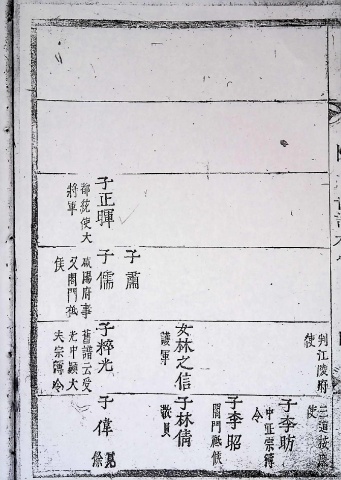 子正暉
都統使大
將軍
子
子儒
咸陽府事
又閤門祗
候
判江陵府
使
女林之信
護軍
子粹光
舊譜云受
光中顯大
夫宗簿令
三道按廉
使
子李昉
中正宗簿
令
子李昭
閤門祗候
子林倩
散員
子偉